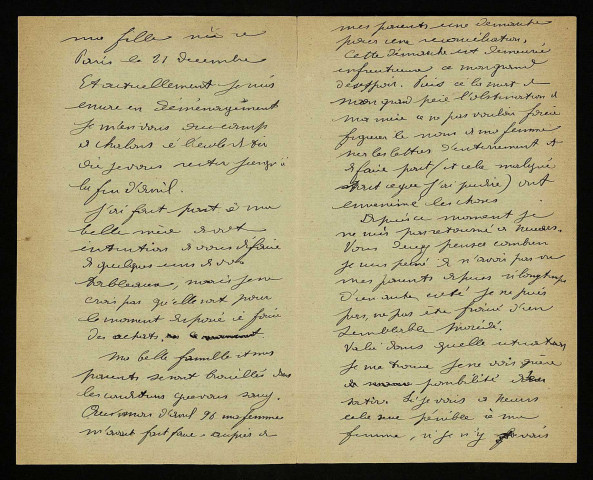 ma fille née
Paris le 21 decembre
Et actuellement je suis
encore en déménagement
je m'en vais au camp
de Chalons à l'école de tir
où je vais rester jusqu'à
la fin d'avril.
J'ai fait part à ma
belle mère de votre
intention de vous défaire
de quelques uns de vos
tableaux, mais je ne
crois pas qu'elle soit pour
le moment disposée à faire
des achats.
Ma belle famille et mes
parents se sont brouillés dans
les conditions que vous savez.
Au mois d'avril 96 ma femme
m'avait fait faire auprès de
mes parents une demarche
pour une reconciliation.
Cette démarche est demeurée
infructueuse à mon grand
desespoir. Puis à la mort de
mon grand père l'obstination de
ma mère à ne pas vouloir faire
figurer le nom de ma femme
sur les lettres d'enterrement et
de faire part (et cela malgré
tout ce que j'ai pu dire) ont
envenimé les choses
Depuis ce moment je
ne suis pas retourné à
Vous jugez pensez combien
je suis peiné de n'avoir pas vu
mes parents depuis si longtemps
d'un autre coté je ne puis
pas ne pas être froissé d'un
semblable procédé.
Voila dans quelle situation
je me trouve je ne vois guère
de possibilité d'en
sortir. Si je vais à
cela sera pénible à ma
femme, si je n'y vais